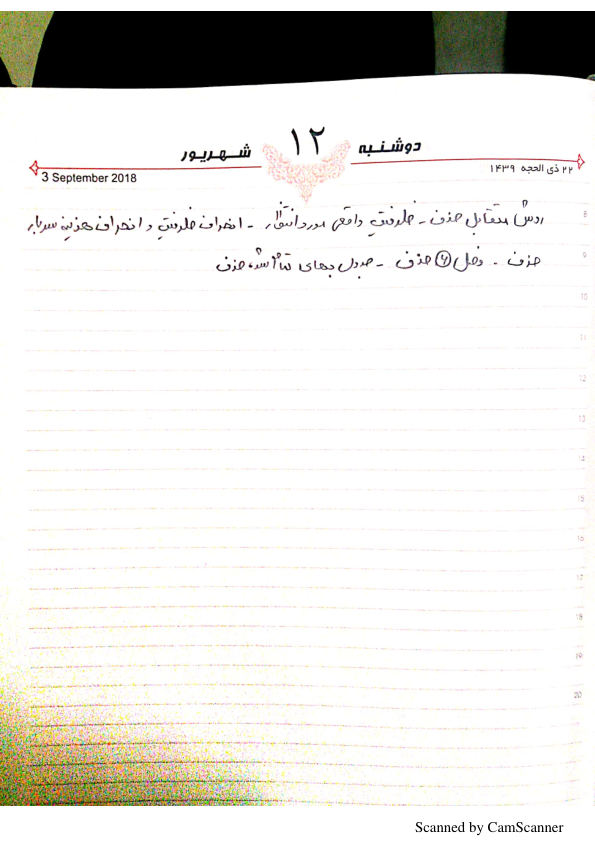 دوشنبه ۱۲ شهریور
۲۲ ذی الحجه ۱۴۳۹
3 September 2018
8 روش متقابل حذف - ظرفیت واقعی مورد انتظار - انحراف ظرفیت و انحراف هزینه سربار
9 حذف - فصل ۶ حذف - جدول بهای تمام شده حذف
10
11
12
13
14
15
16
17
18
19
20
Scanned by CamScanner